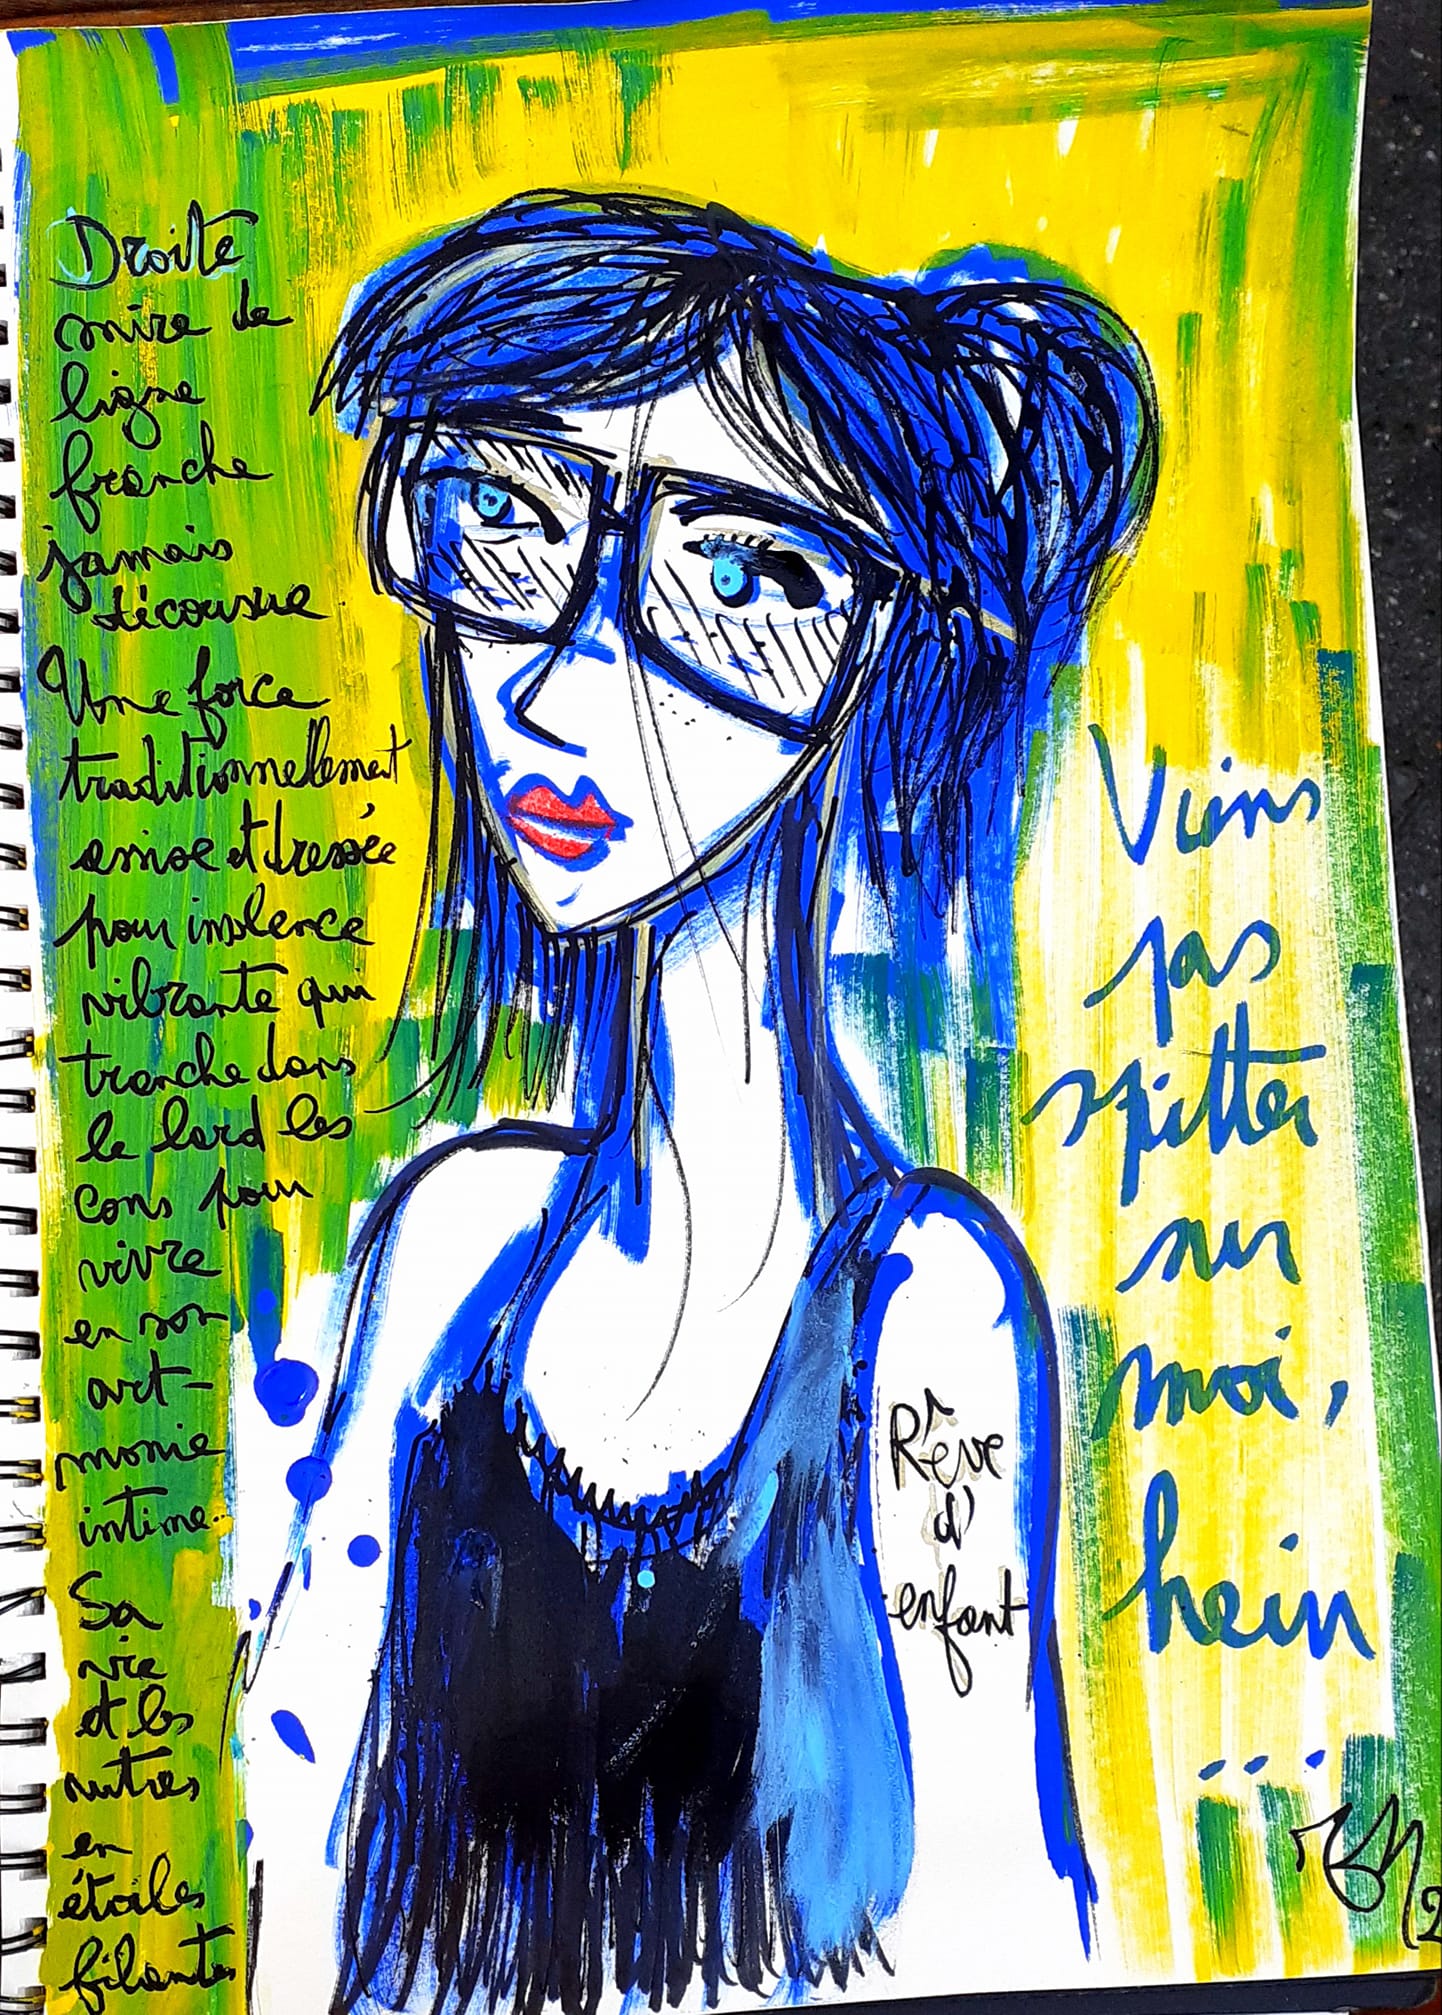 Droite
mire de
ligne
franche
jamais
décousue
Une force
traditionnellement
amise et dressée
pour insolence
vibrante qui
tranche dans
le lard les
cons pour
vivre
en son
art-
monie
intime..
Sa
vie
et les
nutres
en
étoiles
filantes
Rêve
d'
enfant
Viens
pas
spitter
sur
moi,
hein
...